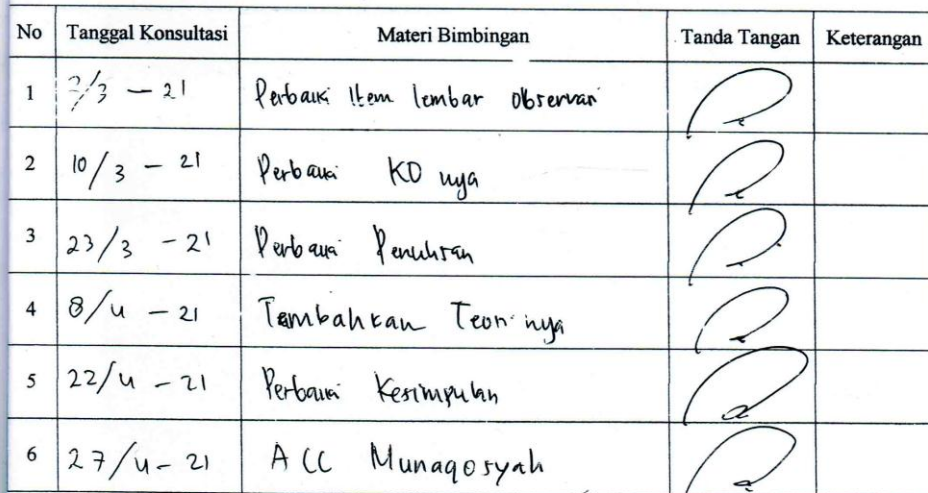 No Tanggal Konsultasi Materi Bimbingan Tanda Tangan Keterangan
1 7/3 - 21 Perbaiki Item lembar observasi
2 10/3 - 21 Perbaiki KD nya
3 23/3 - 21 Perbaiki Penulisan
4 8/4 - 21 Tambahkan Teori nya
5 22/4 - 21 Perbaiki Kesimpulan
6 27/4 - 21 ACC Munaqosyah